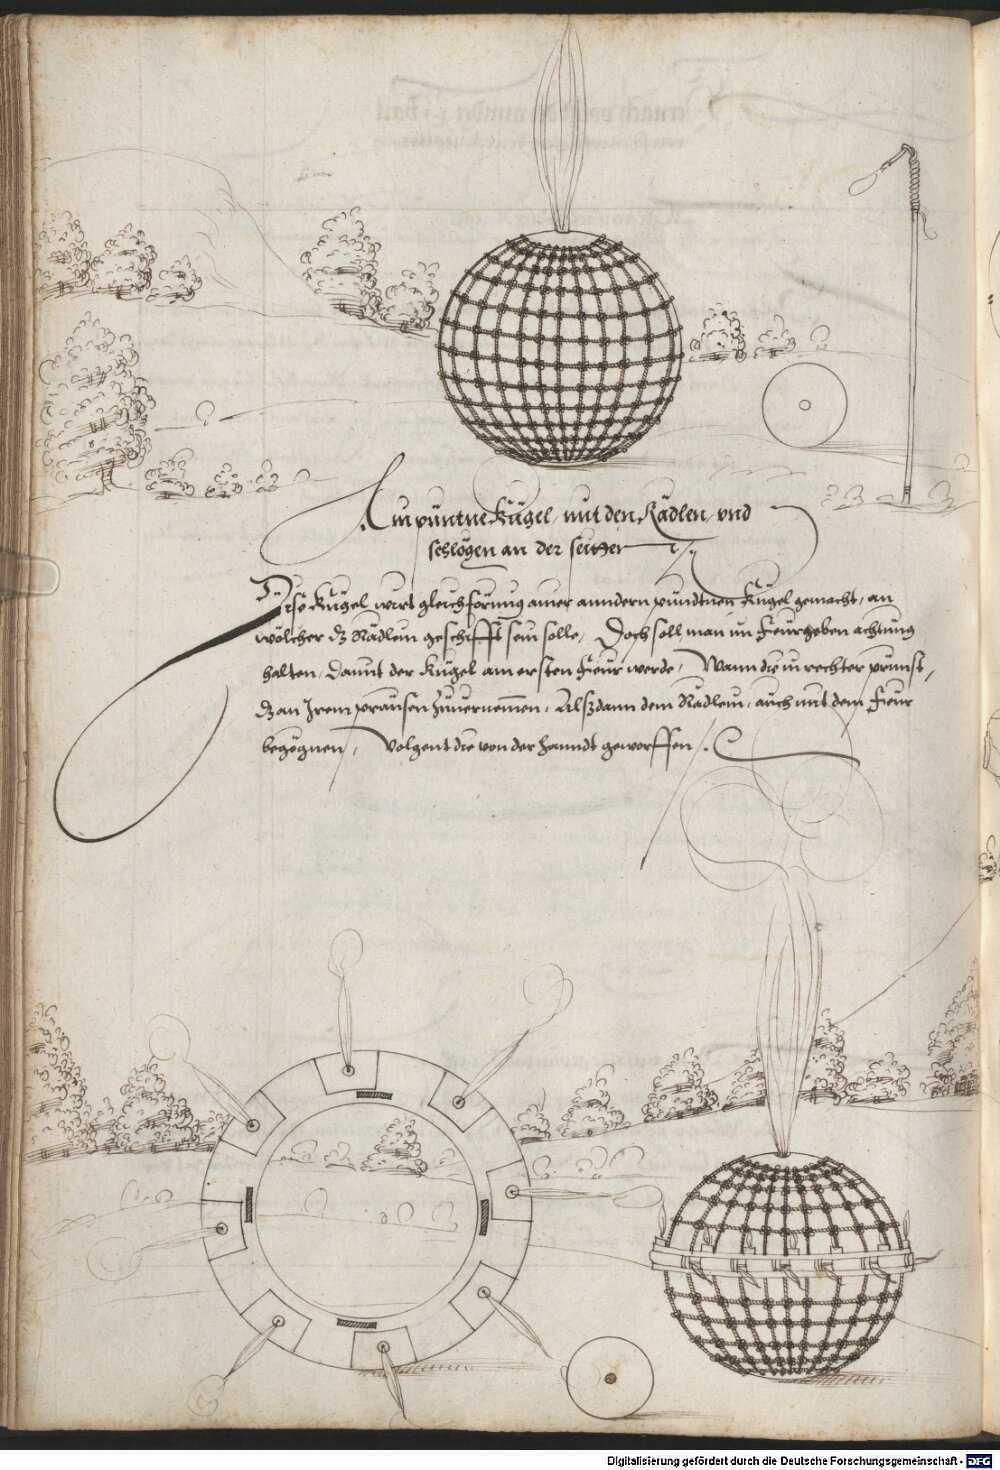 Ain puntne Kugel, mit den Rädlen, und
schlögen an der seitten
Dise Kugel wirt gleichförmig ainer anndern pundtnen Kugel gemacht, an
wölcher dz Rädlein geschifft sein solle, Doch soll man im Feurgeben achtung
halten, damit der Kugel am ersten Feur werde, Wann die in rechter prunst,
dz an Irem prausen zuvernemen, Alsdann dem Rädlein, auch mit dem Feur
begegnen, Volgent die von der hanndt geworffen.
Digitalisierung gefördert durch die Deutsche Forschungsgemeinschaft - DFG